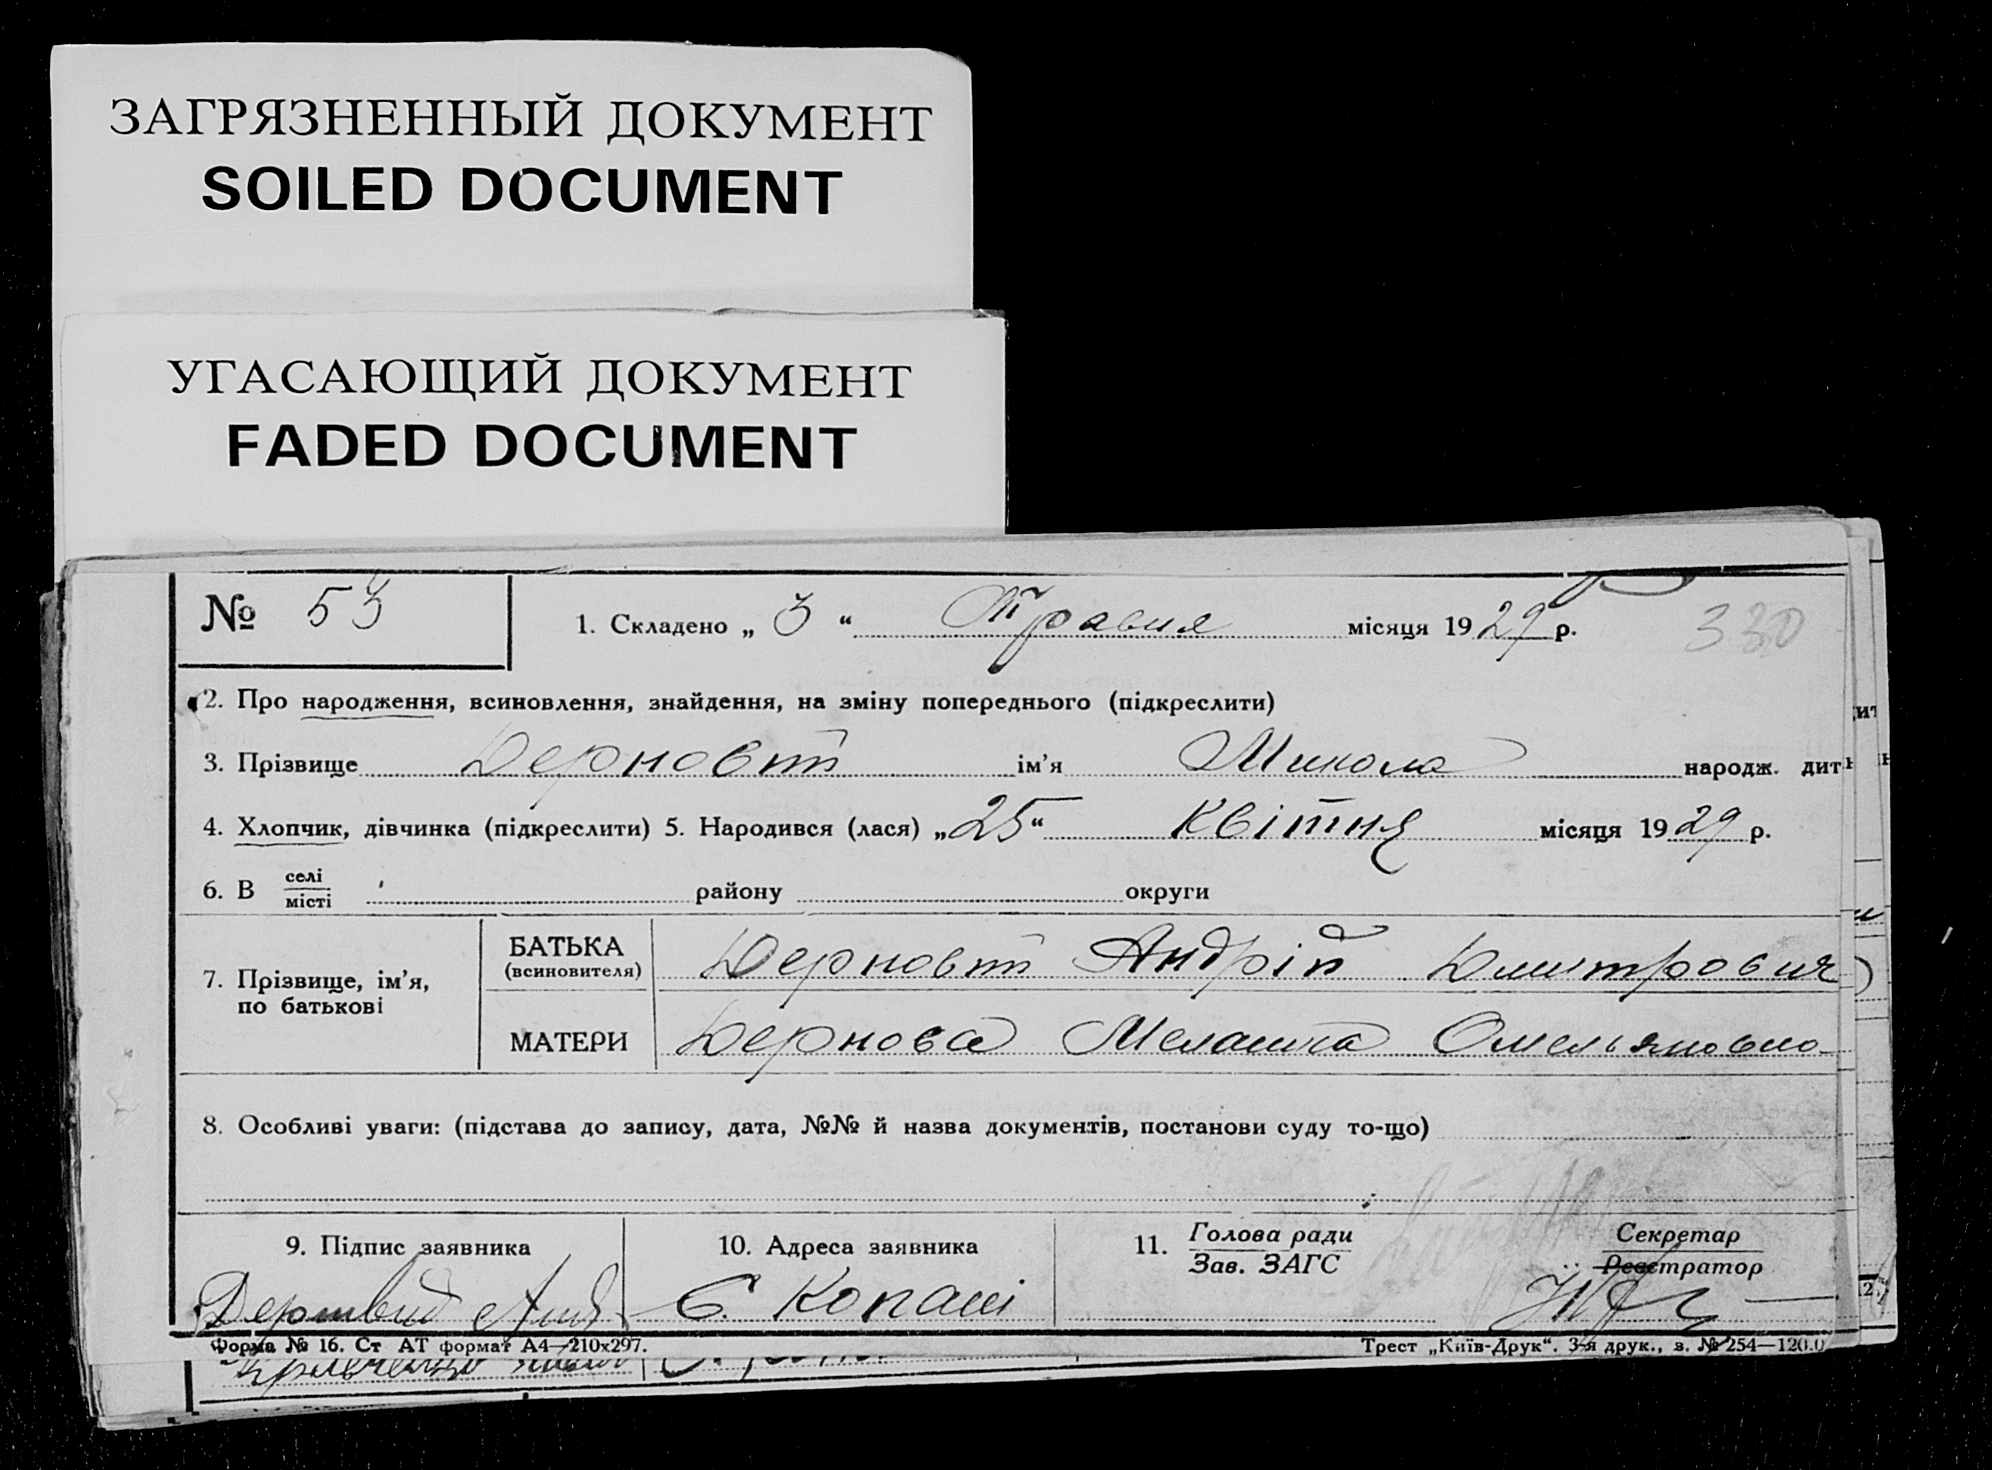 ЗАГРЯЗНЕННЫЙ ДОКУМЕНТ
SOILED DOCUMENT
УГАСАЮЩИЙ ДОКУМЕНТ
FADED DOCUMENT
№ 53
1. Складено „ 3 “ Травня місяця 1929 р. 330
2. Про народження, всиновлення, знайдення, на зміну попереднього (підкреслити)
3. Прізвище Дерновий ім’я Микола народж. дит
4. Хлопчик, дівчинка (підкреслити) 5. Народився (лася) „25“ Квітня місяця 1929 р.
6. В селі/місті району округи
7. Прізвище, ім’я, по батькові
БАТЬКА (всиновителя) Дерновий Андрій Дмитрович
МАТЕРИ Дернова Мелашка Омельяновна
8. Особливі уваги: (підстава до запису, дата, №№ й назва документів, постанови суду то-що)
9. Підпис заявника
10. Адреса заявника
11. Голова ради/Зав. ЗАГС
Секретар/Реєстратор
С. Копані
Форма № 16. Ст АТ формат А4—210х297.
Трест „Київ-Друк“. 3-я друк., з. № 254—120.0